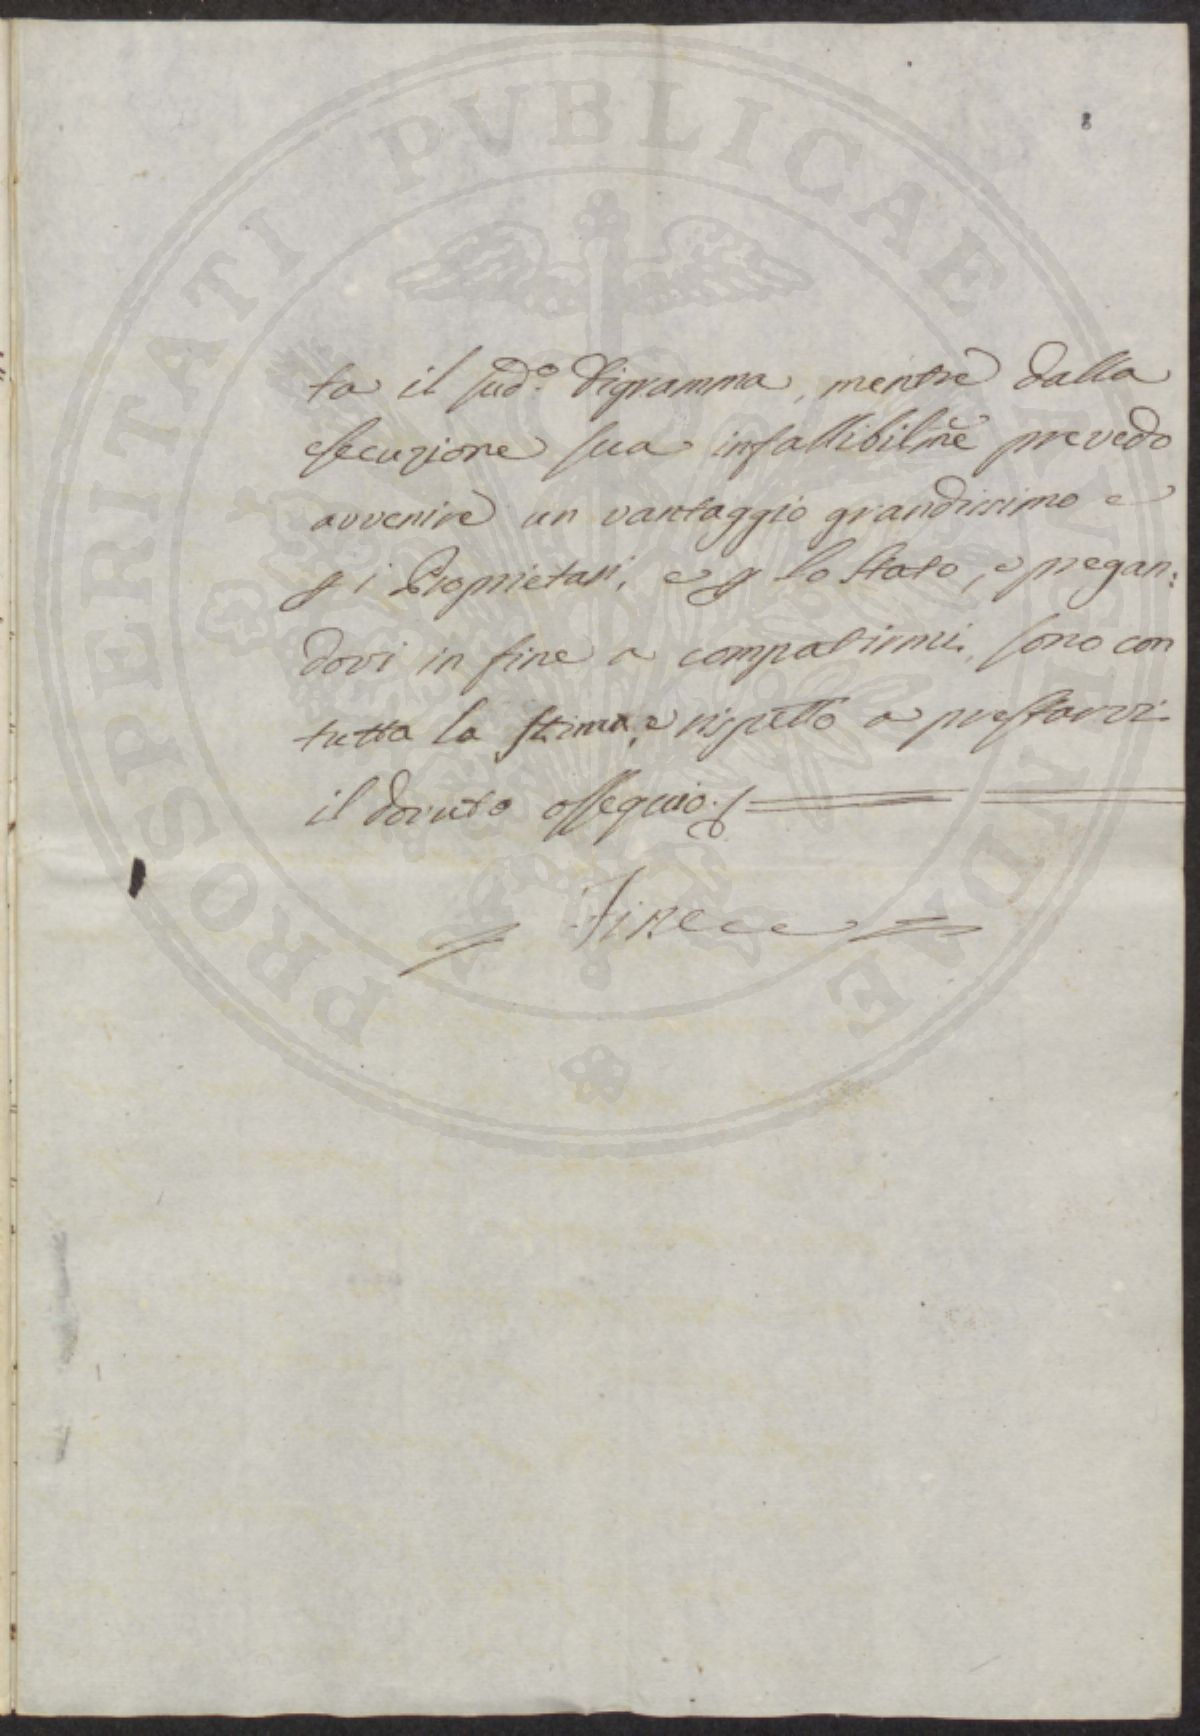 8
ta il sud.º Digramma, mentre dalla
esecuzione sua infallibilm̃e prevedo
avvenire un vantaggio grandissimo e
p i Proprietarj, e p lo Stato, e pregan:
dovi in fine a compatirmi, sono con
tutta la stima, e rispetto a prestarvi
il dovuto ossequio./
Fine
PROSPERITATI PVBLICAE AVGENDAE